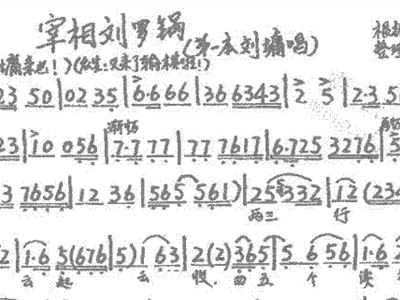 宰相刘罗锅
(第一本刘墉唱)
根据
整理
23 50 | 02 35 | 6·6 66 | 36 6343 | 2 5 | 2·3 5
渐慢
23 | 10 056 | 7·7 77 | 77 7617 | 6·725 3276 | 5
3 7656 | 12 36 | 565 561) | 25 3332 | 12 (234
两三 行
2 | 1·6 5(676 | 5) 1 63 | 2(2) 365 | 5 6 56 | 1·6
云 起 云 慢, 四五 个